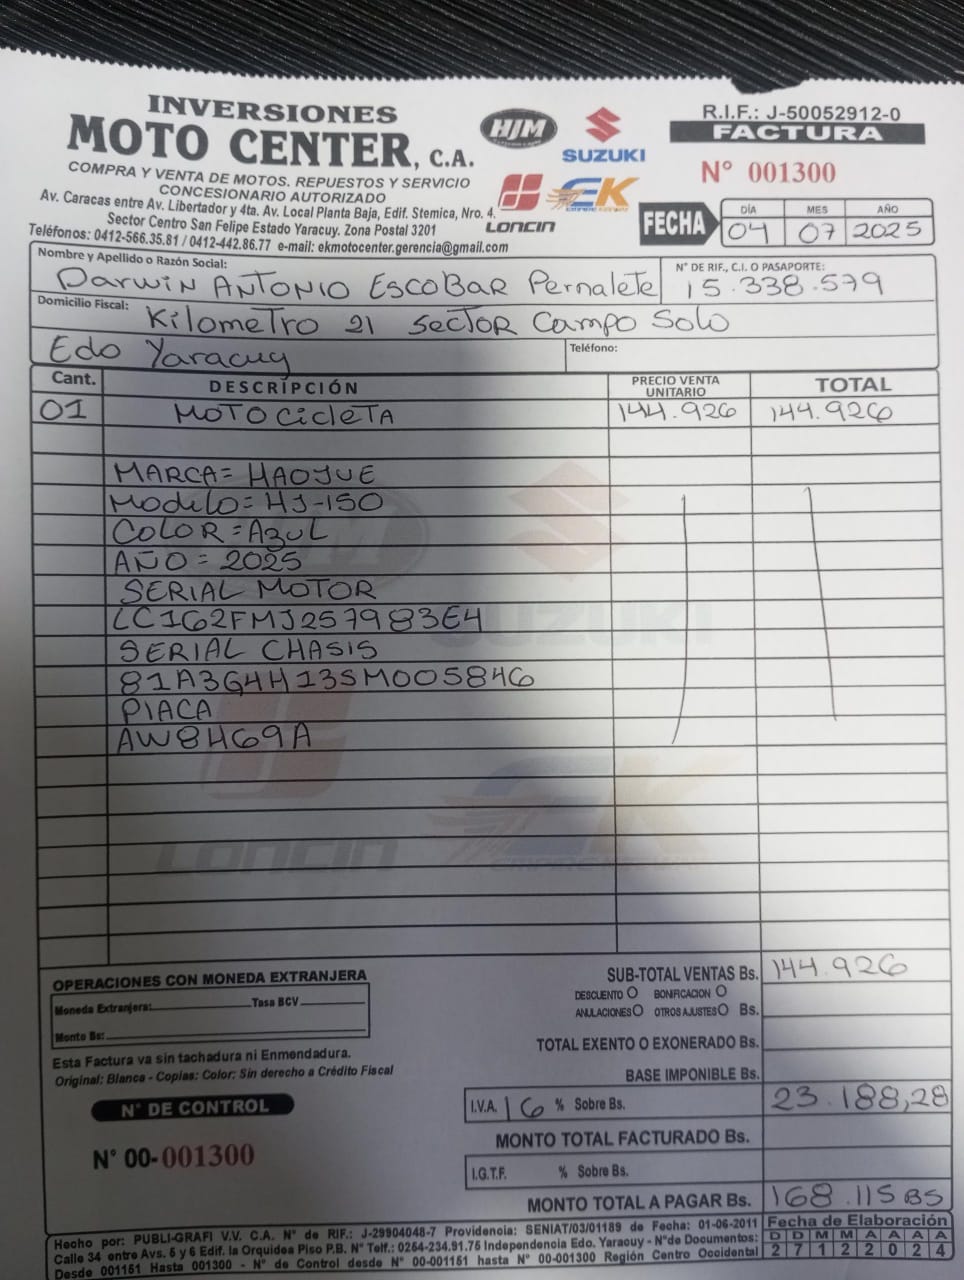 INVERSIONES
MOTO CENTER, C.A.
COMPRA Y VENTA DE MOTOS. REPUESTOS Y SERVICIO
CONCESIONARIO AUTORIZADO
Av. Caracas entre Av. Libertador y 4ta. Av. Local Planta Baja, Edif. Stemica, Nro. 4.
Sector Centro San Felipe Estado Yaracuy. Zona Postal 3201
Teléfonos: 0412-566.35.81 / 0412-442.86.77 e-mail: ekmotocenter.gerencia@gmail.com
HJM
SUZUKI
LONCIN
EK
EMPIRE KEEWAY
R.I.F.: J-50052912-0
FACTURA
N° 001300
FECHA
DÍA MES AÑO
04 07 2025
Nombre y Apellido o Razón Social:
Darwin ANTONIO ESCOBAR Pernalete
N° DE RIF., C.I. O PASAPORTE:
15.338.579
Domicilio Fiscal:
Kilometro 21 Sector Campo Solo
Edo Yaracuy
Teléfono:
Cant. DESCRIPCIÓN PRECIO VENTA UNITARIO TOTAL
01 MOTOcicleTA 144.926 144.926
MARCA= HAOJUE
Modelo= HJ-150
COLOR = AzuL
AÑO = 2025
SERIAL MOTOR
LC162FMJ257983E4
SERIAL CHASIS
81A3G4H13SM005846
PlACA
AW8H69A
SUZUKI
LONCIN
EK
EMPIRE KEEWAY
OPERACIONES CON MONEDA EXTRANJERA
Moneda Extranjera: Tasa BCV
Monto Bs:
Esta Factura va sin tachadura ni Enmendadura.
Original: Blanca - Copias: Color: Sin derecho a Crédito Fiscal
N° DE CONTROL
N° 00-001300
SUB-TOTAL VENTAS Bs. 144.926
DESCUENTO BONIFICACION
ANULACIONES OTROS AJUSTES Bs.
TOTAL EXENTO O EXONERADO Bs.
BASE IMPONIBLE Bs.
I.V.A. 16 % Sobre Bs. 23.188,28
MONTO TOTAL FACTURADO Bs.
I.G.T.F. % Sobre Bs.
MONTO TOTAL A PAGAR Bs. 168.115 BS
Hecho por: PUBLI-GRAFI V.V. C.A. N° de RIF.: J-29904048-7 Providencia: SENIAT/03/01189 de Fecha: 01-06-2011
Calle 34 entre Avs. 5 y 6 Edif. la Orquidea Piso P.B. N° Telf.: 0254-234.91.75 Independencia Edo. Yaracuy - N°de Documentos:
Desde 001151 Hasta 001300 - N° de Control desde N° 00-001151 hasta N° 00-001300 Región Centro Occidental
Fecha de Elaboración
D D M M A A A A
2 7 1 2 2 0 2 4